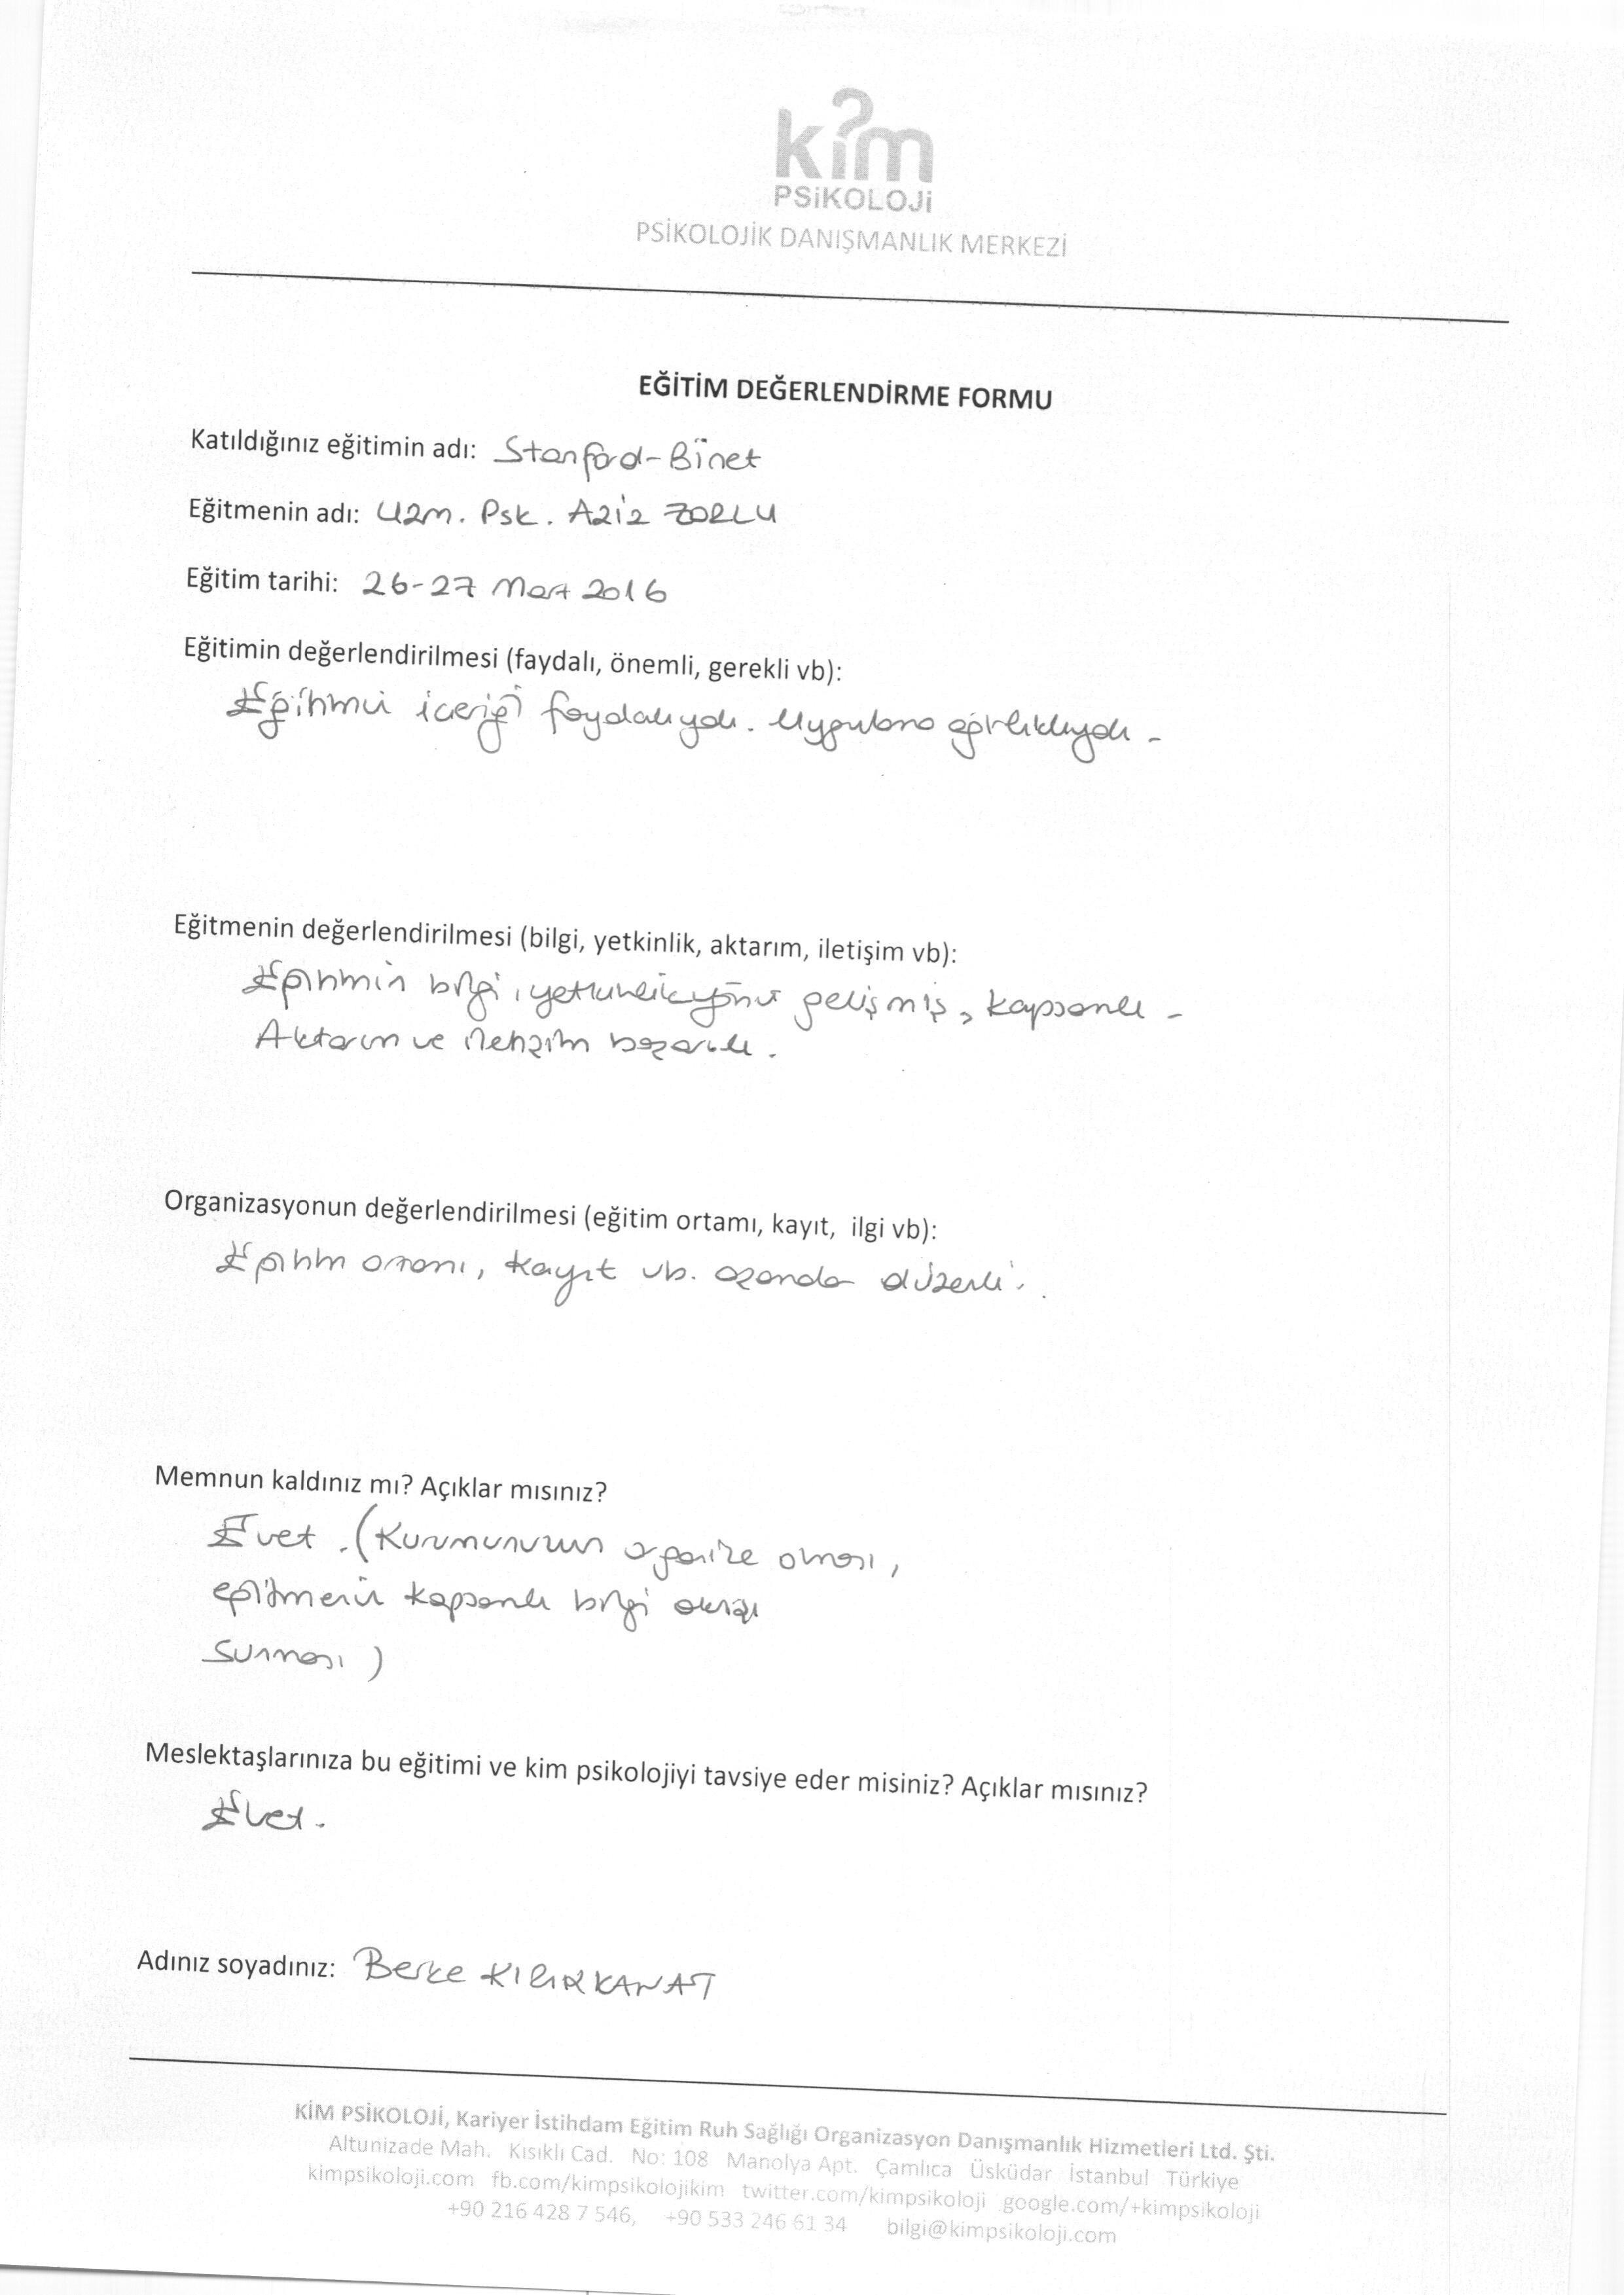 kim
PSiKOLOJi
PSİKOLOJİK DANIŞMANLIK MERKEZİ
EĞİTİM DEĞERLENDİRME FORMU
Katıldığınız eğitimin adı: Stanford-Binet
Eğitmenin adı: Uzm. Psk. Aziz ZORLU
Eğitim tarihi: 26-27 Mart 2016
Eğitimin değerlendirilmesi (faydalı, önemli, gerekli vb):
Eğitimin içeriği faydalıydı. Uygulama ağırlıklıydı.
Eğitmenin değerlendirilmesi (bilgi, yetkinlik, aktarım, iletişim vb):
bilgi, yetkinlik yönü gelişmiş, kapsamlı.
Aktarım ve iletişim başarılı.
Organizasyonun değerlendirilmesi (eğitim ortamı, kayıt, ilgi vb):
Eğitim ortamı, kayıt vb. düzenli.
Memnun kaldınız mı? Açıklar mısınız?
Evet. (Kurumunuzun organize olması,
eğitmenin kapsamlı bilgi
sunması)
Meslektaşlarınıza bu eğitimi ve kim psikolojiyi tavsiye eder misiniz? Açıklar mısınız?
Evet.
Adınız soyadınız: Berke KILIRKANAT
KİM PSİKOLOJİ, Kariyer İstihdam Eğitim Ruh Sağlığı Organizasyon Danışmanlık Hizmetleri Ltd. Şti.
Altunizade Mah. Kısıklı Cad. No: 108 Manolya Apt. Çamlıca Üsküdar İstanbul Türkiye
kimpsikoloji.com fb.com/kimpsikolojikim twitter.com/kimpsikoloji google.com/+kimpsikoloji
+90 216 428 7 546, +90 533 246 61 34 bilgi@kimpsikoloji.com